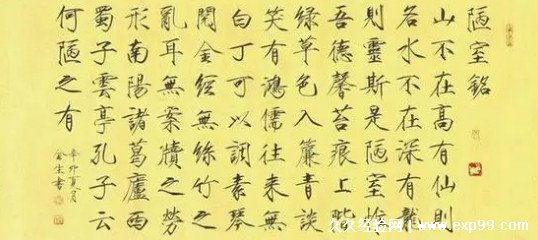 陋室銘
山不在高有仙則
名水不在深有龍
則靈斯是陋室惟
吾德馨苔痕上階
綠草色入簾青談
笑有鴻儒往來無
白丁可以調素琴
閱金經無絲竹之
亂耳無案牘之勞
形南陽諸葛廬西
蜀子雲亭孔子云
何陋之有
辛卯夏月
久久经验网 www.exp99.com